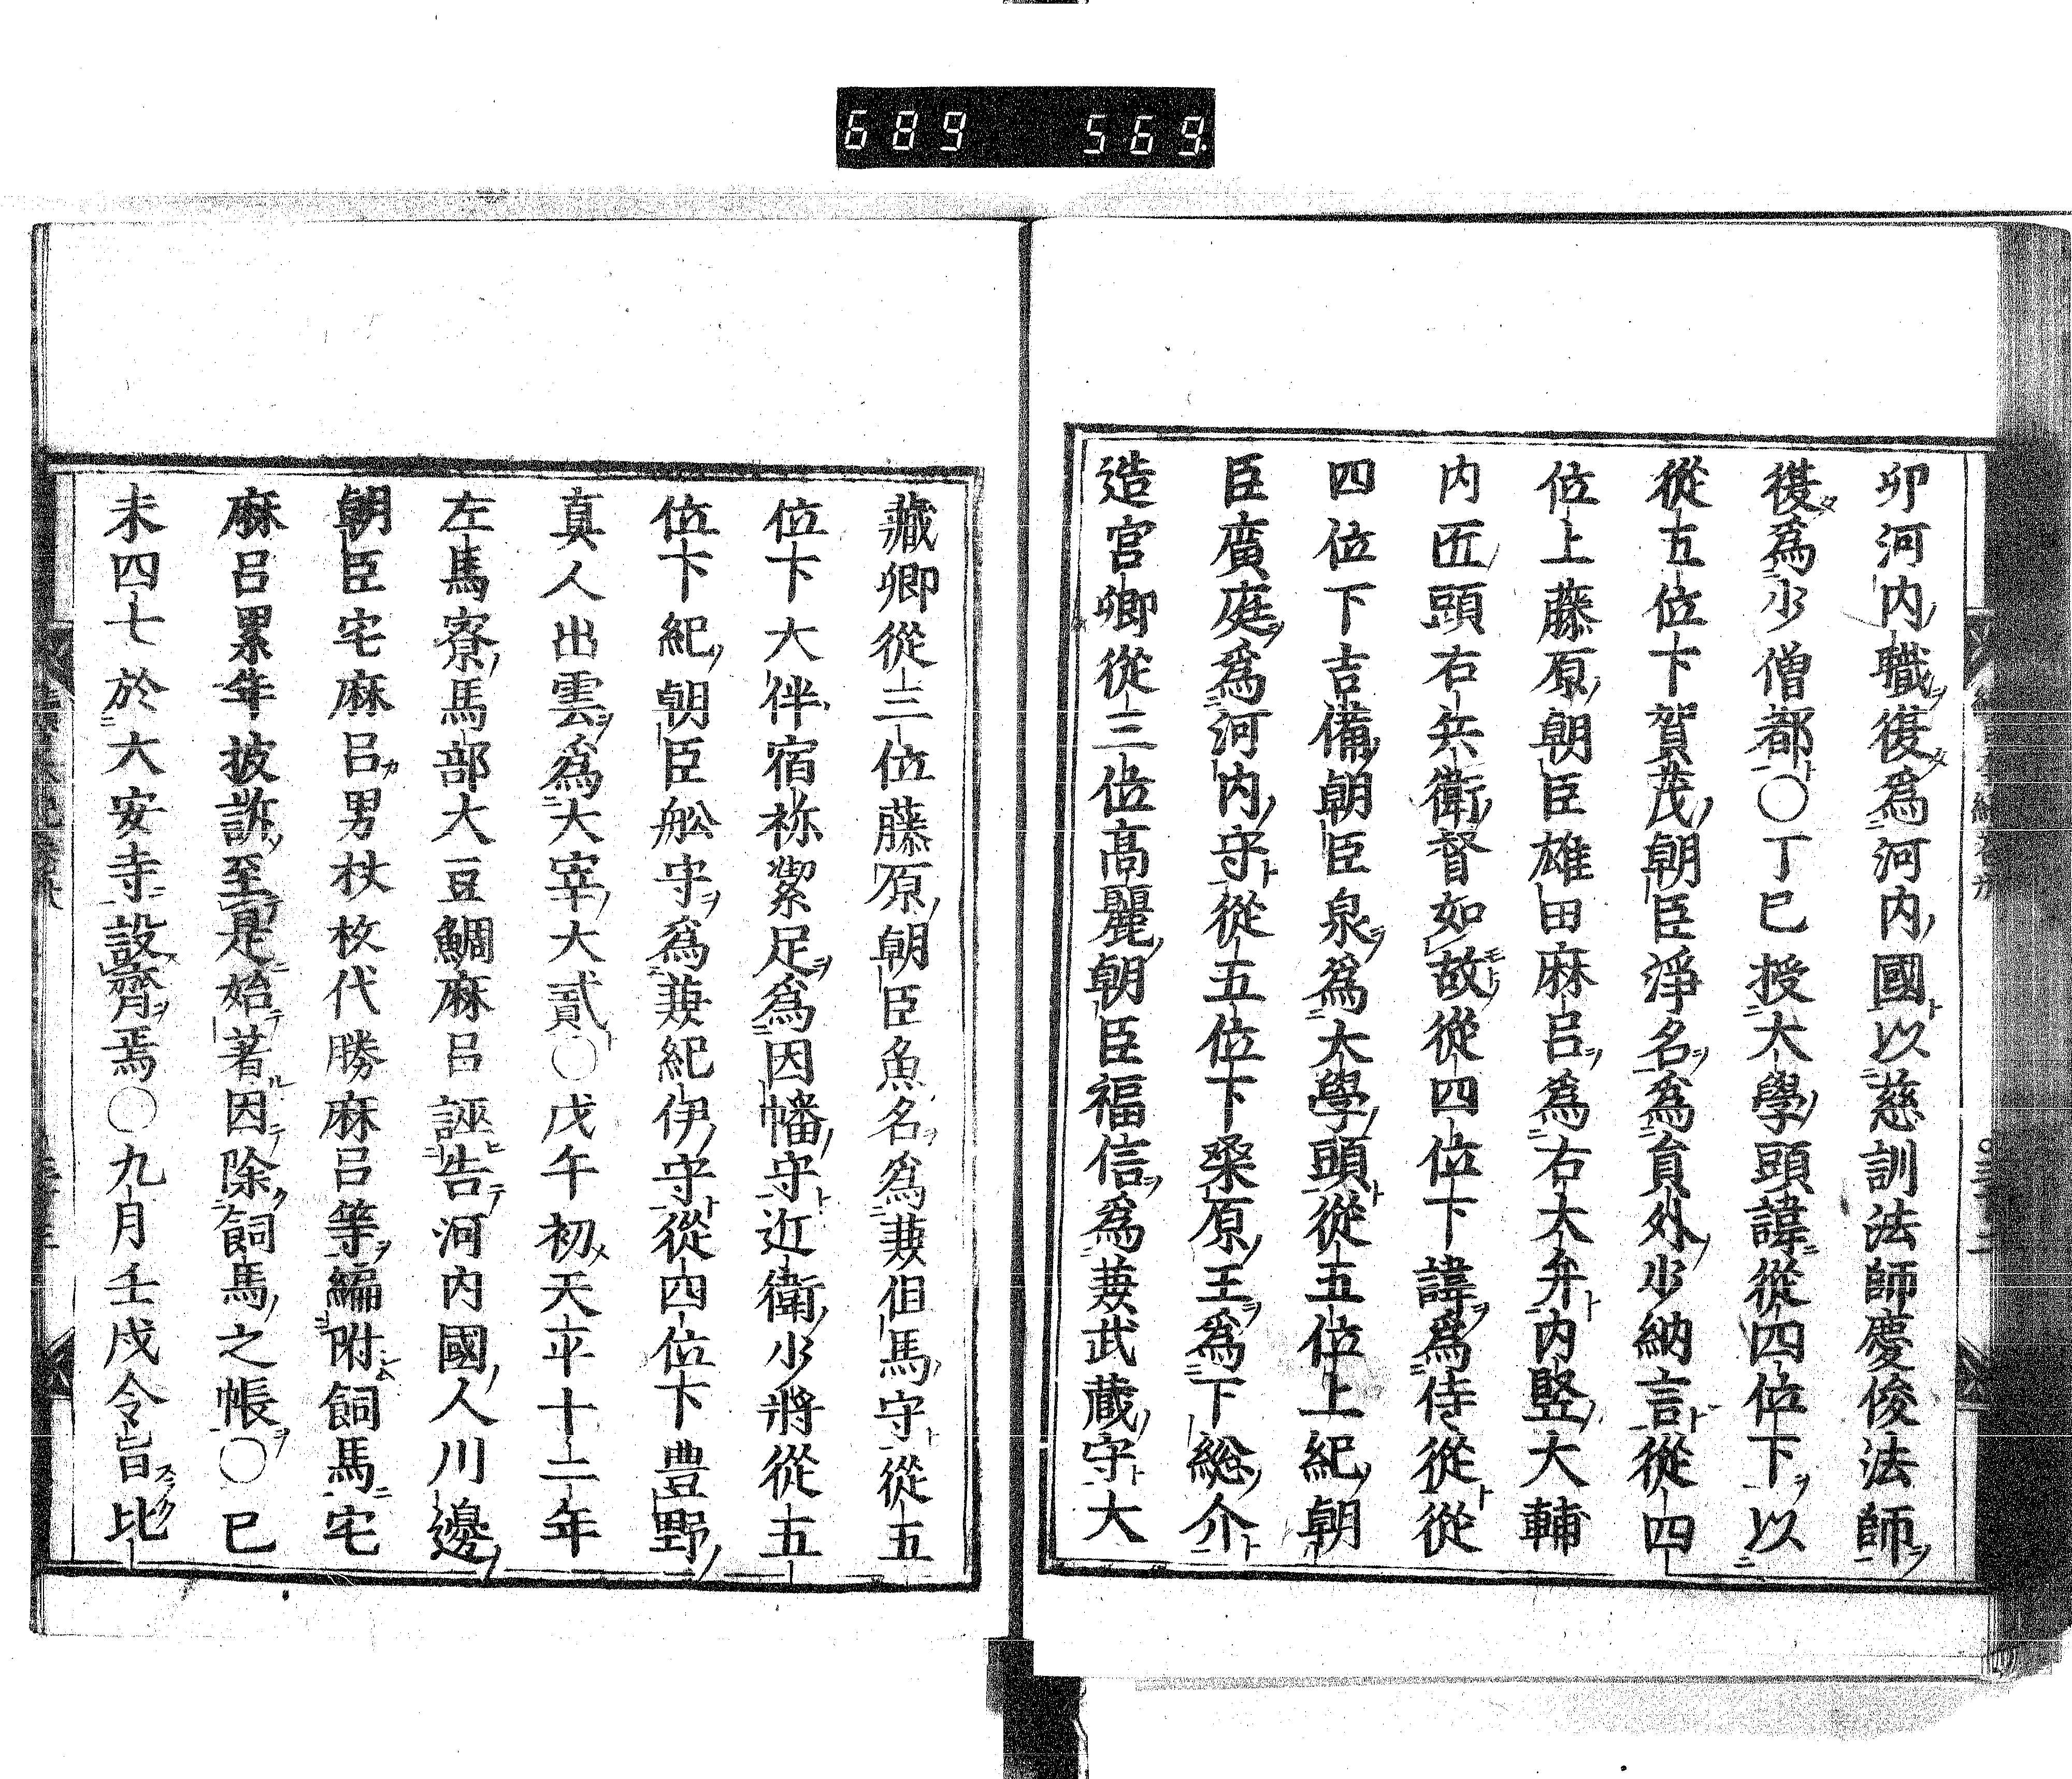 689 569
卯河内職復爲河内國以慈訓法師慶俊法師
復爲少僧都〇丁巳授大學頭諱從四位下以
從五位下賀茂朝臣淨名爲員外少納言從四
位上藤原朝臣雄田麻呂爲右大弁内竪大輔
内匠頭右兵衛督如故從四位下諱爲侍從從
四位下吉備朝臣泉爲大學頭從五位上紀朝
臣廣庭爲河内守從五位下桒原王爲下総介
造宮卿從三位高麗朝臣福信爲兼武蔵守大
藏卿從三位藤原朝臣魚名爲兼但馬守從五
位下大伴宿祢潔足爲因幡守近衛少將從五
位下紀朝臣舩守爲兼紀伊守從四位下豊野
真人出雲爲大宰大貳〇戊午初天平十二年
左馬寮馬部大豆鯛麻呂誣告河内國人川邊
朝臣宅麻呂男杖枚代勝麻呂等編附飼馬宅
麻呂累年披訴至是始著因除飼馬之帳〇巳
未四七於大安寺設齋焉〇九月壬戌令旨比